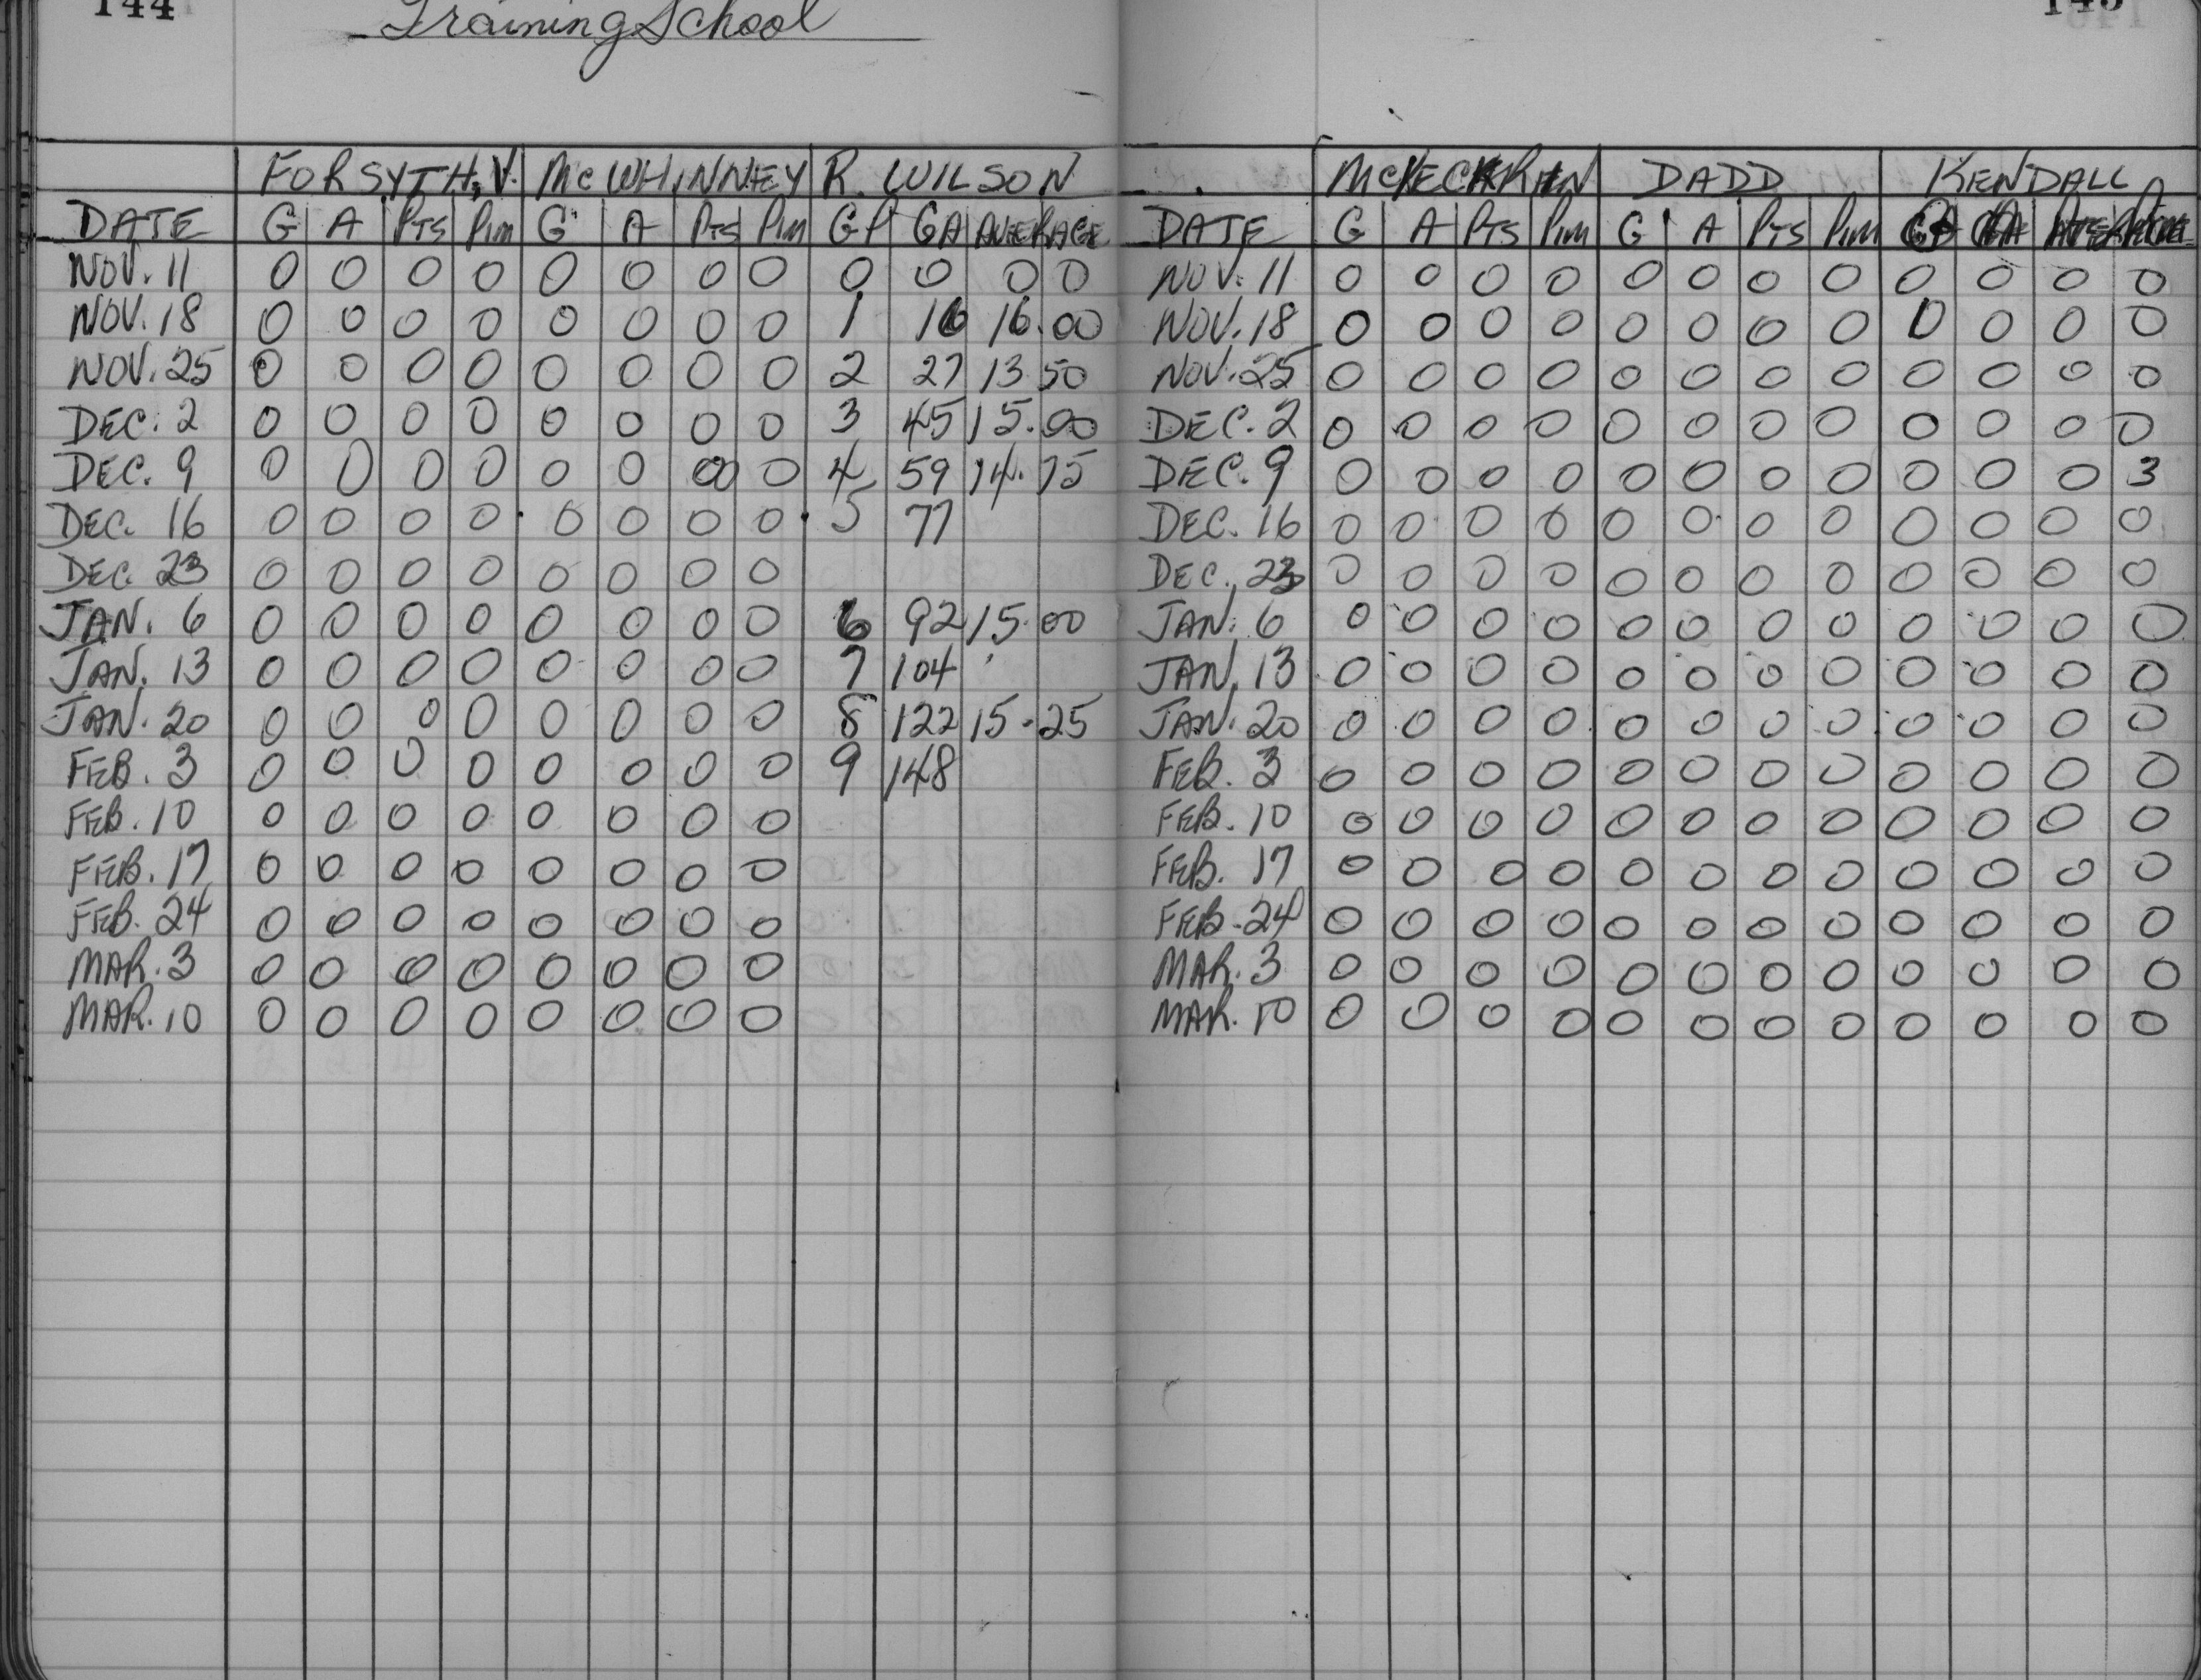 144
Training School
FORSYTH, V. MCWHINNEY R. WILSON
DATE G A PTS PIM G A PTS PIM GP GA AVERAGE
NOV. 11 0 0 0 0 0 0 0 0 0 0 0 0
NOV. 18 0 0 0 0 0 0 0 0 1 16 16.00
NOV. 25 0 0 0 0 0 0 0 0 2 27 13 50
DEC. 2 0 0 0 0 0 0 0 0 3 45 15.00
DEC. 9 0 0 0 0 0 0 00 0 4 59 14.75
DEC. 16 0 0 0 0 0 0 0 0 5 77
DEC. 23 0 0 0 0 0 0 0 0
JAN. 6 0 0 0 0 0 0 0 0 6 92 15.00
JAN. 13 0 0 0 0 0 0 0 0 7 104
JAN. 20 0 0 0 0 0 0 0 0 8 122 15.25
FEB. 3 0 0 0 0 0 0 0 0 9 148
FEB. 10 0 0 0 0 0 0 0 0
FEB. 17 0 0 0 0 0 0 0 0
FEB. 24 0 0 0 0 0 0 0 0
MAR. 3 0 0 0 0 0 0 0 0
MAR. 10 0 0 0 0 0 0 0 0
145
DADD KENDALL
DATE G A PTS PIM G A PTS PIM
NOV. 11 0 0 0 0 0 0 0 0 0 0 0 0
NOV. 18 0 0 0 0 0 0 0 0 0 0 0 0
NOV. 25 0 0 0 0 0 0 0 0 0 0 0 0
DEC. 2 0 0 0 0 0 0 0 0 0 0 0 0
DEC. 9 0 0 0 0 0 0 0 0 0 0 0 3
DEC. 16 0 0 0 0 0 0 0 0 0 0 0 0
DEC. 23 0 0 0 0 0 0 0 0 0 0 0 0
JAN. 6 0 0 0 0 0 0 0 0 0 0 0 0
JAN. 13 0 0 0 0 0 0 0 0 0 0 0 0
JAN. 20 0 0 0 0 0 0 0 0 0 0 0 0
FEB. 3 0 0 0 0 0 0 0 0 0 0 0 0
FEB. 10 0 0 0 0 0 0 0 0 0 0 0 0
FEB. 17 0 0 0 0 0 0 0 0 0 0 0 0
FEB. 24 0 0 0 0 0 0 0 0 0 0 0 0
MAR. 3 0 0 0 0 0 0 0 0 0 0 0 0
MAR. 10 0 0 0 0 0 0 0 0 0 0 0 0